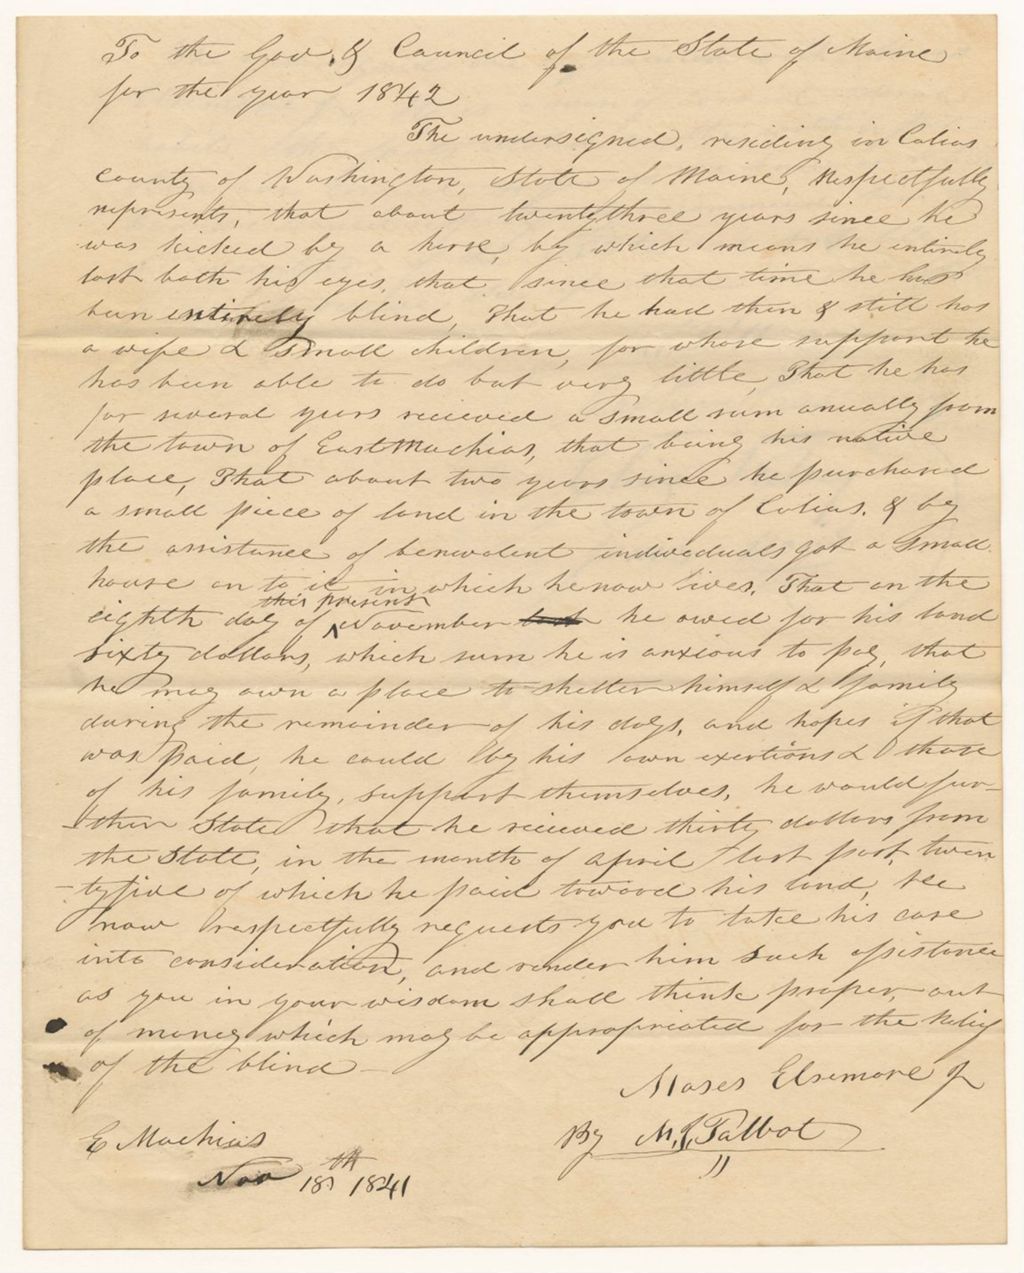 To the Gov. & Council of the State of Maine
for the year 1842
The undersigned, residing in Calias
county of Washington, State of Maine, Respectfully
represents, that about twentythree years since he
was kicked by a horse, by which means he entirely
lost both his eyes, that since that time he has
been entirely blind, That he had then & still has
a wife & small children, for whose support he
has been able to do but very little, That he has
for several years recieved a small sum anually from
the town of East Machias, that being his native
place, That about two years since he purchased
a small piece of land in the town of Calias. & by
the assistance of benevolent individuals got a small
house on to it in which he now lives. That on the
this present
eighth day of November he owed for his land
sixty dollars, which sum he is anxious to pay, that
he may own a place to shelter himself & family
during the remainder of his days, and hopes if that
was paid, he could by his own exertions & those
of his family, support themselves, he would fur-
-ther State that he recieved thirty dollars from
the State, in the month of April last past, twen
-tyfive of which he paid toward his land, He
now respectfully requests you to take his case
into consideration, and render him such assistance
as you in your wisdom shall think proper, out
of money which may be appropriated for the Relief
of the blind —
Moses Elsemore
By M. J. Talbot
E Machias
Nov 18th 1841